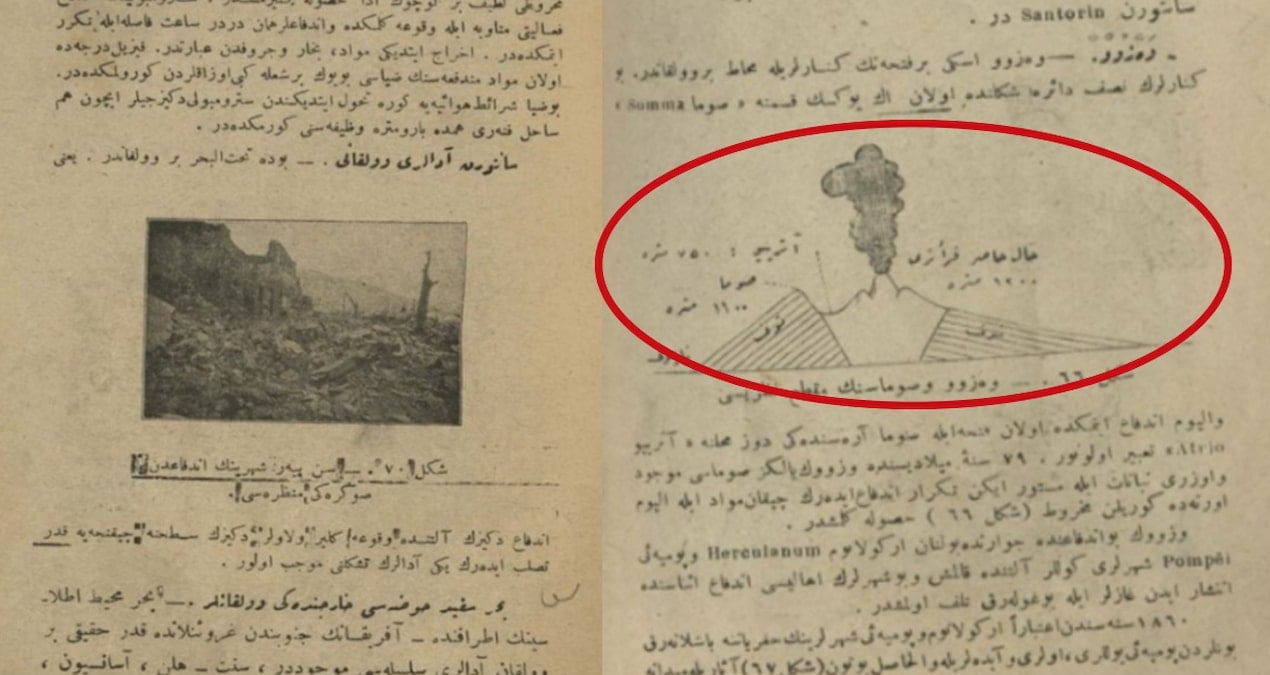 سانتورن Santorin در .
وه‌زوو. — وه‌زوو اسكی بر فتحه‌نك كنارلریله محاط بر وولقاندر. بو
كنارلرك نصف دائره شكلنده اولان اك یوكسك قسمنه « صوما Somma »
آتریو : ٧٥٠ متره
حال حاضر قرأتری
١٢٠٠ متره
صوما
١١٠٠ متره
توف
توف
شكل ٦٦ . — وه‌زوو وصوماسنك مقطع نظریسی
والیوم اندفاع ایتمكده اولان فتحه ایله صوما آره‌سنده‌كی دوز محلنه « آتریو
Atrio » تعبیر اولونور . ٧٩ سنۀ میلادیسنده وزووك یالكز صوماسی موجود
واوزری نباتات ایله مستور ایكن تكرار اندفاع ایده‌رك چیقان مواد ایله الیوم
اورته‌ده كوریلن مخروط (شكل ٦٦ ) حصوله كلمشدر .
وزووك بو اندفاعنده جوارنده بولنان اركولانوم Herculanum وپومپه‌ئی
Pompéi شهرلری كوللر آلتنده قالمش وبو شهرلرك اهالیسی اندفاع اثناسنده
انتشار ایدن غازلر ایله بوغوله‌رق تلف اولمشدر .
١٨٦٠ سنه‌سندن اعتباراً اركولانوم وپومپه‌ئی شهرلرینك حفریاتنه باشلانه‌رق
بونلردن پومپه‌ئی یوللری ، اولری وآبده‌لریله والحاصل بوتون (شكل ٦٧) آثاریله میدانه
فعالیتی متناوبه ایله وقوعه كلمكده واندفاعلر همان دردر ساعت فاصله ایله تكرر
ایتمكده‌در . اخراج ایتدیكی مواد، بخار وجروفدن عبارتدر. قیزیل درجه‌ده
اولان مواد مندفعه‌سنك ضیاسی بویوك بر شعله كبی اوزاقلردن كورولمكده‌در.
بو ضیا شرائط هوائیه‌یه كوره تحول ایتدیكندن سترومبولی دكیزجیلر ایچون هم
ساحل فنه‌ری همده بارومتره وظیفه‌سنی كورمكده‌در .
سانتورن آدالری وولقانی . — بوده تحت‌البحر بر وولقاندر . یعنی
شكل ٧٠ . سن پیه‌ر شهرینك اندفاعدن
صوكره‌كی منظره‌سی .
اندفاع دكیزك آلتنده وقوعه كلیر ولاولر دكیزك سطحنه چیقنجه‌یه قدر
تصلب ایده‌رك یكی آدالرك تشكلنی موجب اولور .
بحر سفید حوضه‌سی خارجنده‌كی وولقانلر . — بحر محیط اطلا-
سینك اطرافنده — آفریقانك جنوبندن غروئنلانده قدر حقیقی بر
وولقان آدالری سلسله‌سی موجوددر ، سنت — هلن ، آسانسیون ،